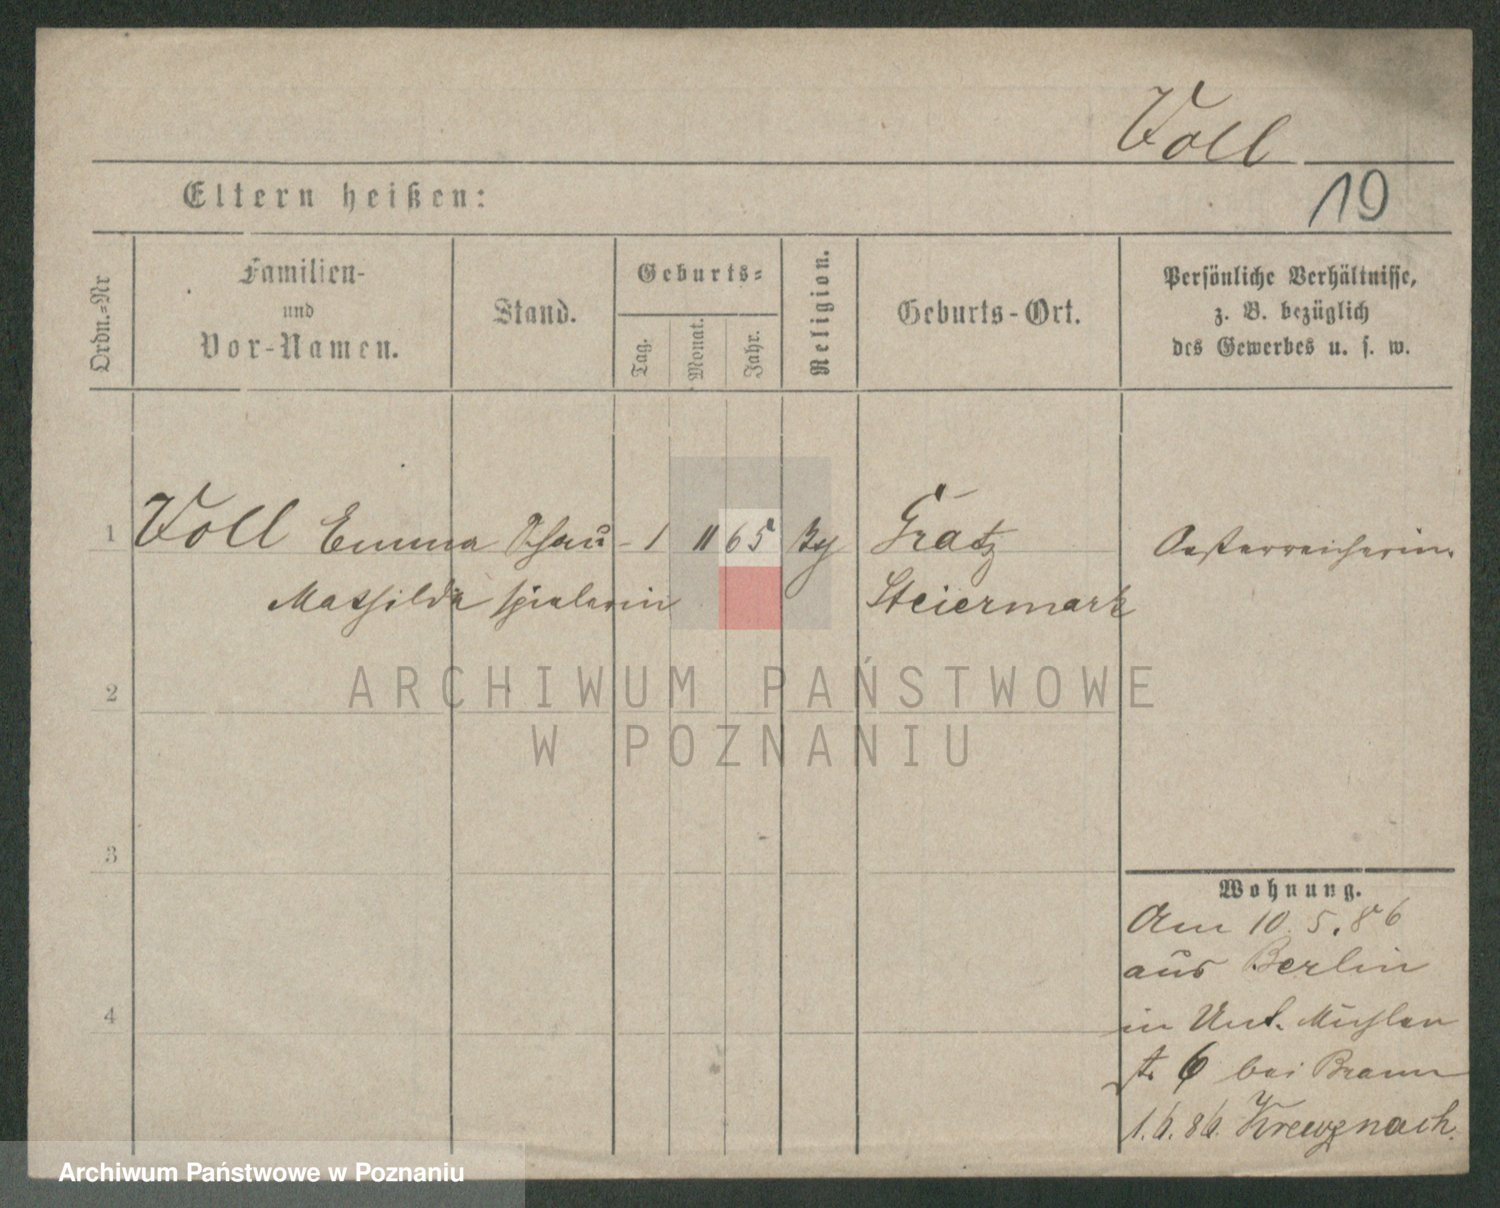 Voll
Eltern heißen:
19
Ordn.=Nr
Familien-
und
Vor-Namen.
Stand.
Geburts=
Tag.
Monat.
Jahr.
Religion.
Geburts-Ort.
Persönliche Verhältnisse,
z. B. bezüglich
des Gewerbes u. s. w.
1 Voll Emma Schau- 1 11 65 Gratz Oesterreicherin.
Mathilde spielerin Steiermark
2
3
4
Wohnung.
Am 10. 5. 86
aus Berlin
in Unt. Mühlen
str. 6 bei Braun
1.6.86. Kreuznach.
ARCHIWUM PAŃSTWOWE
W POZNANIU
Archiwum Państwowe w Poznaniu